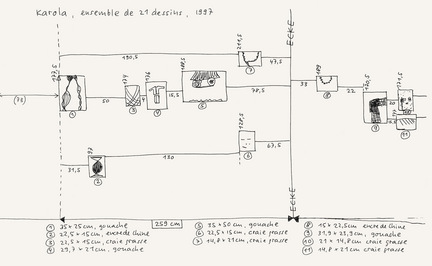 Karola, ensemble de 21 dessins, 1997
ECKE
190,5
47,5
(73)
50
4
15,5
78,5
33
22
31,5
97
130
67,5
ECKE
259 cm
① 35 × 25 cm, gouache
② 22,5 × 15 cm, encre de Chine
③ 22,5 × 15 cm, craie grasse
④ 29,7 × 21 cm, gouache
⑤ 35 × 50 cm, gouache
⑥ 22,5 × 15 cm, craie grasse
⑦ 14,8 × 21 cm, craie grasse
⑧ 15 × 22,5 cm encre de Chine
⑨ 31,9 × 23,9 cm, gouache
⑩ 21 × 14,8 cm craie grasse
⑪ 14,8 × 21 cm, craie grasse